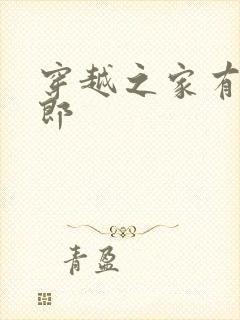 穿越之家有
郎
青盈